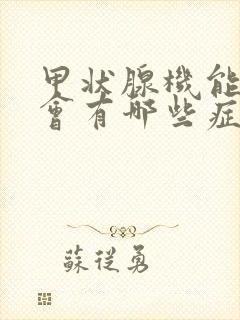 甲状腺機能
會有哪些症
蘇從勇